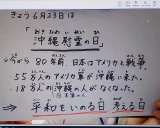 きょう6月23日は
おきなわ いれい ひ
「沖縄慰霊の日」
今から 80年前 日本はアメリカと戦争。
55万人のアメリカ軍が沖縄に来た。
18万人の沖縄の人がなくなった。
⇒ 平和をいのる日 考える日